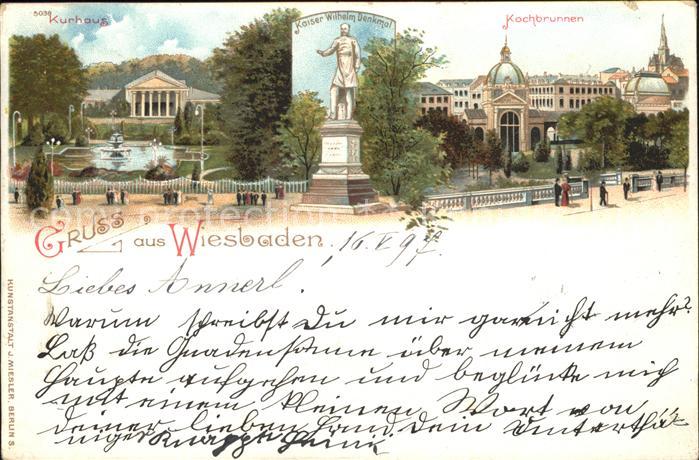 5036
Kurhaus
Kaiser Wilhelm Denkmal
Kochbrunnen
Gruss aus Wiesbaden.
16.V.97.
Liebes Annerl!
Warum schreibst Du mir gar nicht mehr?
Laß die Gnadensonne über meinem
Haupte aufgehen und beglücke mich
mit einem kleinen Wort von
deiner lieben Hand. Dein Unterthä-
niger Knappe
KUNSTANSTALT J. MIESLER, BERLIN S.